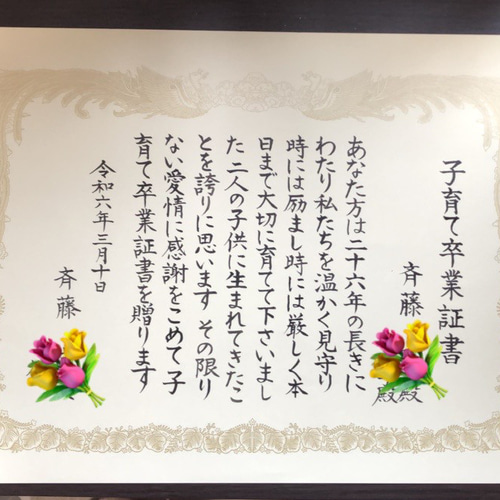 子育て卒業証書
斉藤
殿殿
あなた方は二十六年の長きに
わたり私たちを温かく見守り
時には励まし時には厳しく本
日まで大切に育てて下さいまし
た 二人の子供に生まれてきたこ
とを誇りに思います その限り
ない愛情に感謝をこめて子
育て卒業証書を贈ります
令和六年三月十日
斉藤